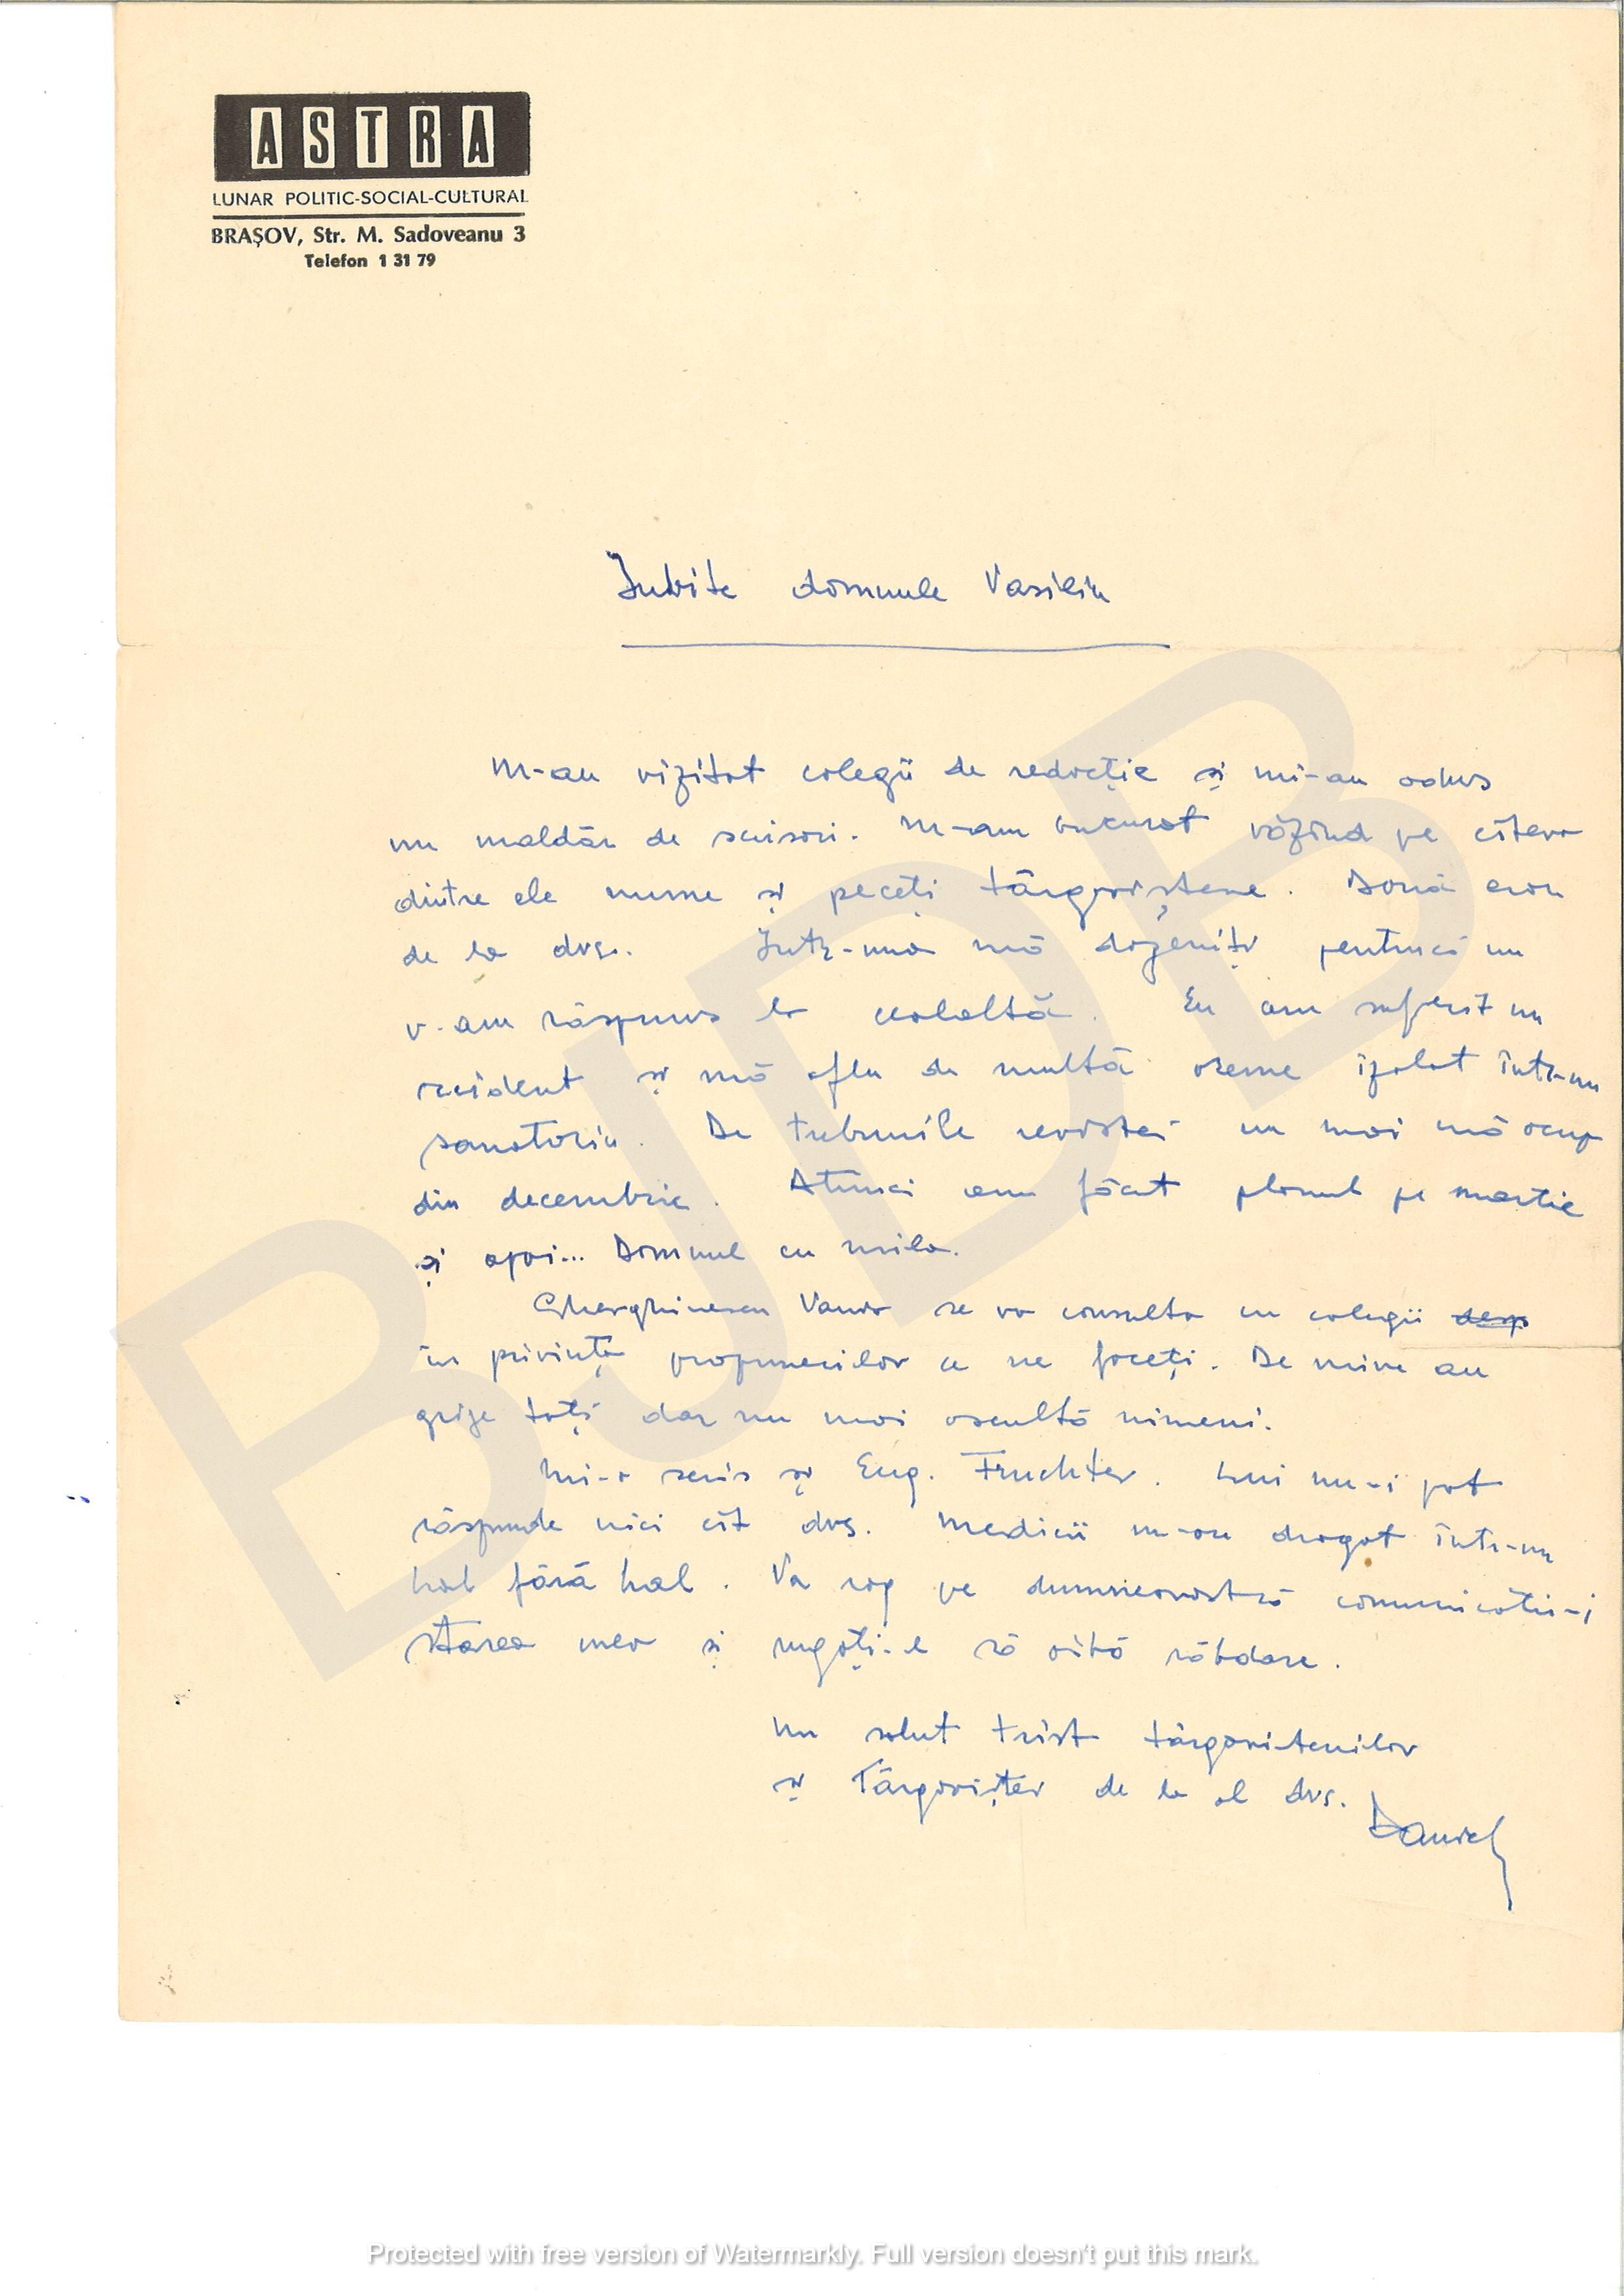 ASTRA
LUNAR POLITIC-SOCIAL-CULTURAL
BRAȘOV, Str. M. Sadoveanu 3
Telefon 1 31 79
Iubite domnule Vasiliu
M-au vizitat colegii de redacție și mi-au adus
un maldăr de scrisori. M-am bucurat văzînd pe cîteva
dintre ele nume și peceți târgoviștene. Două erau
de la dvs. Într-una mă dojeniți pentrucă nu
v-am răspuns la cealaltă. Eu am suferit un
accident și mă aflu de multă vreme izolat într-un
sanatoriu. De treburile revistei nu mai mă ocup
din decembrie. Atunci am făcut planul pe martie
și apoi... Domnul cu mila.
Gherghinescu Vania se va consulta cu colegii desp
în privința propunerilor ce ne faceți. De mine au
grije toți dar nu mai ascultă nimeni.
Mi-a scris și Eug. Fruchter. Lui nu-i pot
răspunde nici cît dvs. Medicii m-au drogat într-un
hal fără hal. Va rog pe dumneavoastră comunicați-i
starea mea și rugați-l să aibă răbdare.
Un salut trist târgoviștenilor
și Târgoviștei de la al dvs.
Daniel
BJDB
Protected with free version of Watermarkly. Full version doesn't put this mark.